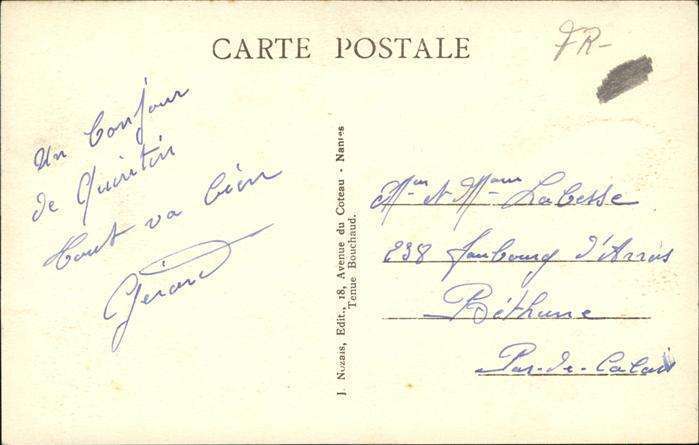 CARTE POSTALE
FR-
Un bonjour
de Quintin
tout va bien
Gérard
J. Nozais, Edit., 18, Avenue du Coteau - Nantes
Tenue Bouchaud.
Mr et Mme Labesse
238 faubourg d'Arras
Béthune
Pas-de-Calais